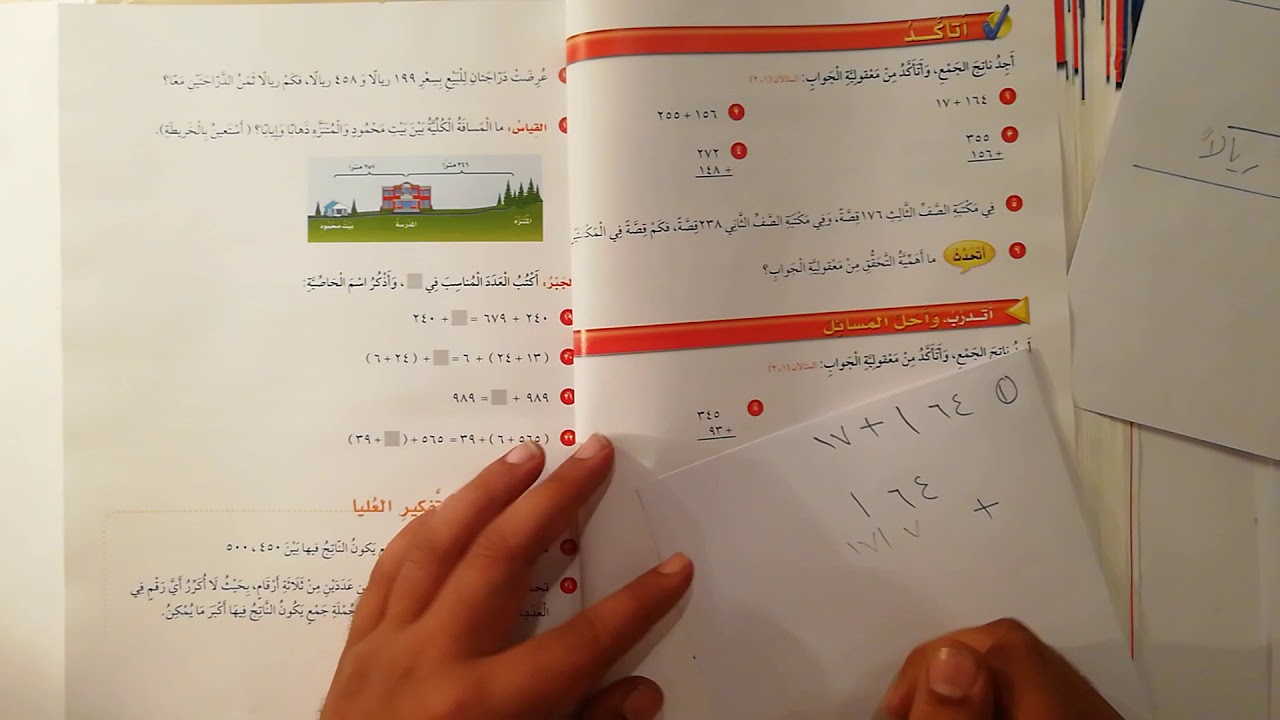 أَتَأَكَّدُ
أَجِدُ نَاتِجَ الْجَمْعِ، وَأَتَأَكَّدُ مِنْ مَعْقُولِيَّةِ الْجَوابِ: المثالان (١، ٢)
١ ١٦٤ + ١٧
٢ ١٥٦ + ٢٥٥
٣ ٣٥٥
١٥٦ +
٤ ٢٧٢
١٤٨ +
٥ فِي مَكْتَبَةِ الصَّفِّ الثَّالِثِ ١٧٦ قِصَّةً، وَفِي مَكْتَبَةِ الصَّفِّ الثَّانِي ٢٣٨ قِصَّةً، فَكَمْ قِصَّةً فِي
٦ أَتَحَدَّثُ ما أَهَمِّيَّةُ التَّحَقُّقِ مِنْ مَعْقُولِيَّةِ الْجَوابِ؟
أَتَدَرَّبُ، وَأَحُلُّ المسائل
نَاتِجَ الْجَمْعِ، وَأَتَأَكَّدُ مِنْ مَعْقُولِيَّةِ الْجَوابِ: المثالان (١، ٢)
٨ ٣٤٥
٩٣ +
عُرِضَتْ دَرَّاجَتانِ لِلْبَيْعِ بِسِعْرِ ١٩٩ رِيالًا وَ ٤٥٨ رِيالًا، فَكَمْ رِيالًا ثَمَنُ الدَّرَّاجَتَيْنِ مَعًا؟
القِياسُ: ما الْمَسافَةُ الْكُلِّيَّةُ بَيْنَ بَيْتِ مَحْمُودٍ وَالْمُتَنَزَّهِ ذَهابًا وَإِيابًا؟ ( أَسْتَعِينُ بِالْخَرِيطَةِ).
٣٤٦ مترًا
٢٥٧ مترًا
المتنزه
المدرسة
بيت محمود
أَكْتُبُ الْعَدَدَ الْمُناسِبَ فِي ، وَأَذْكُرُ اسْمَ الْخاصِّيَّةِ:
١٩ ٢٤٠ + ٦٧٩ = + ٢٤٠
٢٠ (١٣ + ٢٤) + ٦ = + (٢٤ + ٦)
٢١ ٩٨٩ + = ٩٨٩
٢٢ (٥٦٥ + ٦) + ٣٩ = ٥٦٥ + ( + ٣٩)
العُليا
يَكونُ النَّاتِجُ فيها بَيْنَ ٤٥٠، ٥٠٠
عَدَدَيْنِ مِنْ ثَلاثَةِ أَرْقامٍ، بِحَيْثُ لَا أُكَرِّرُ أَيَّ رَقْمٍ فِي
جَمْعٍ يَكُونُ النَّاتِجُ فِيهَا أَكْبَرَ ما يُمْكِنُ.
١ ١٦٤ + ١٧
١٦٤
+
ريالاً